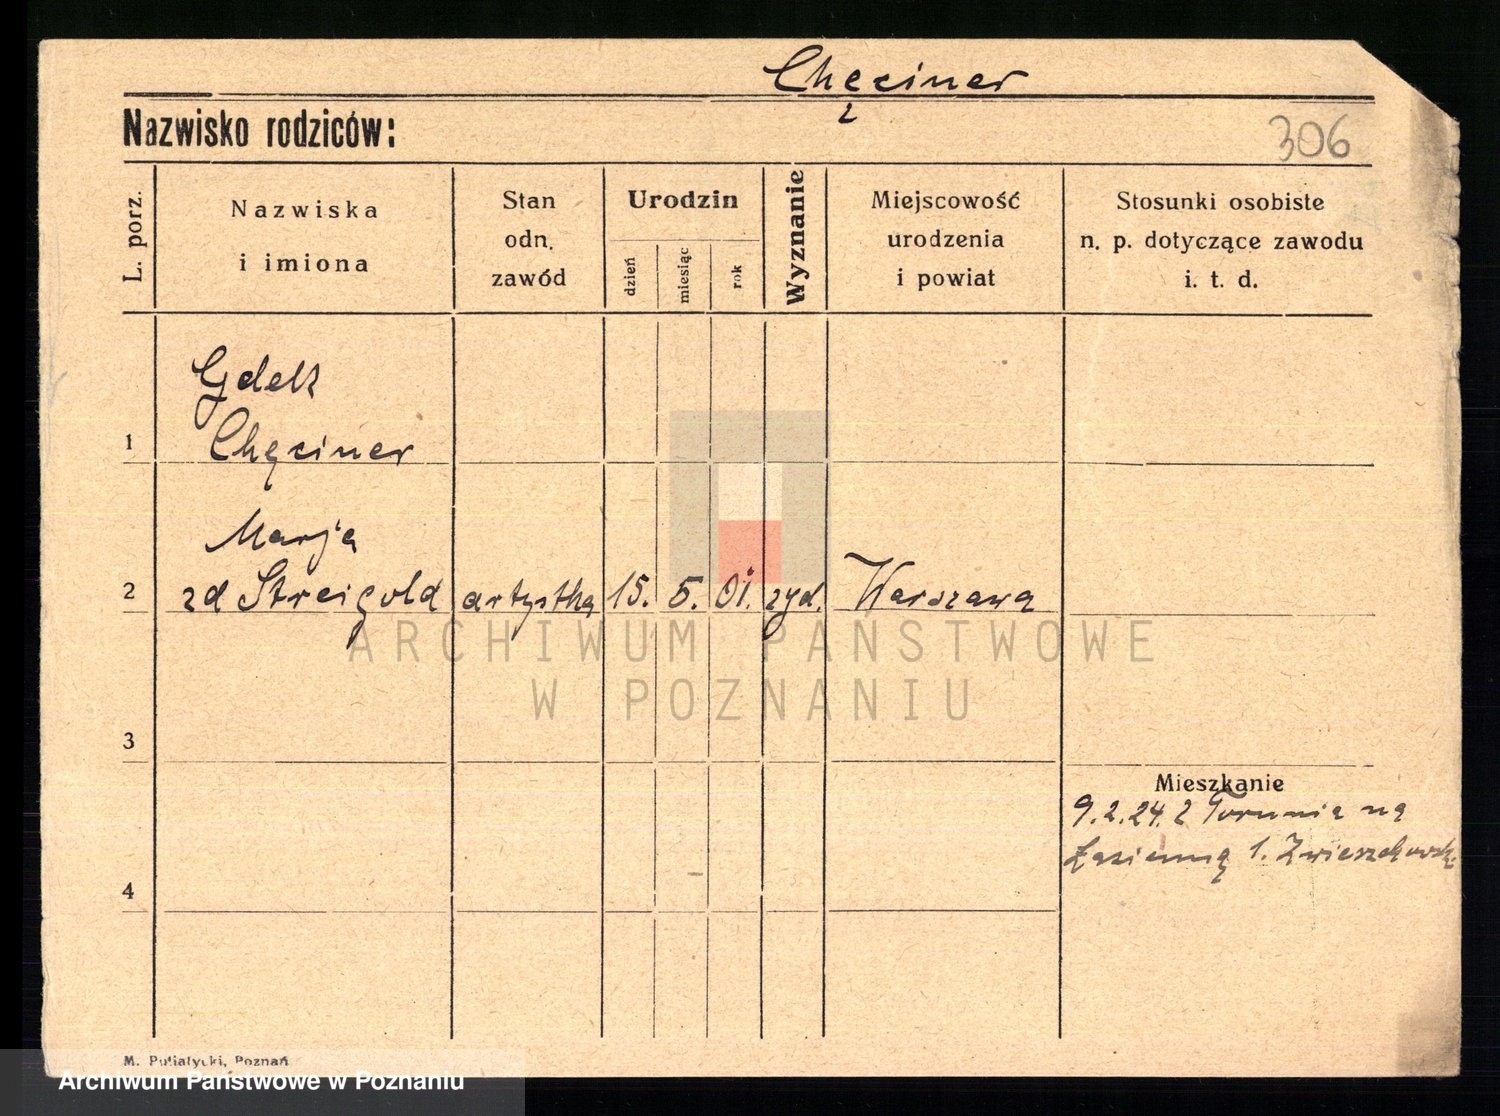 Chęciner
Nazwisko rodziców:
306
L. porz.
Nazwiska
i imiona
Stan
odn.
zawód
Urodzin
dzień
miesiąc
rok
Wyznanie
Miejscowość
urodzenia
i powiat
Stosunki osobiste
n. p. dotyczące zawodu
i. t. d.
Gdelk
1 Chęciner
Marja
2 zd Streigold artystka 15. 5. 01. żyd. Warszawa
3
Mieszkanie
9.2.24. z Torunia na
1.
4
ARCHIWUM PAŃSTWOWE
W POZNANIU
M. Putiatycki, Poznań
Archiwum Państwowe w Poznaniu